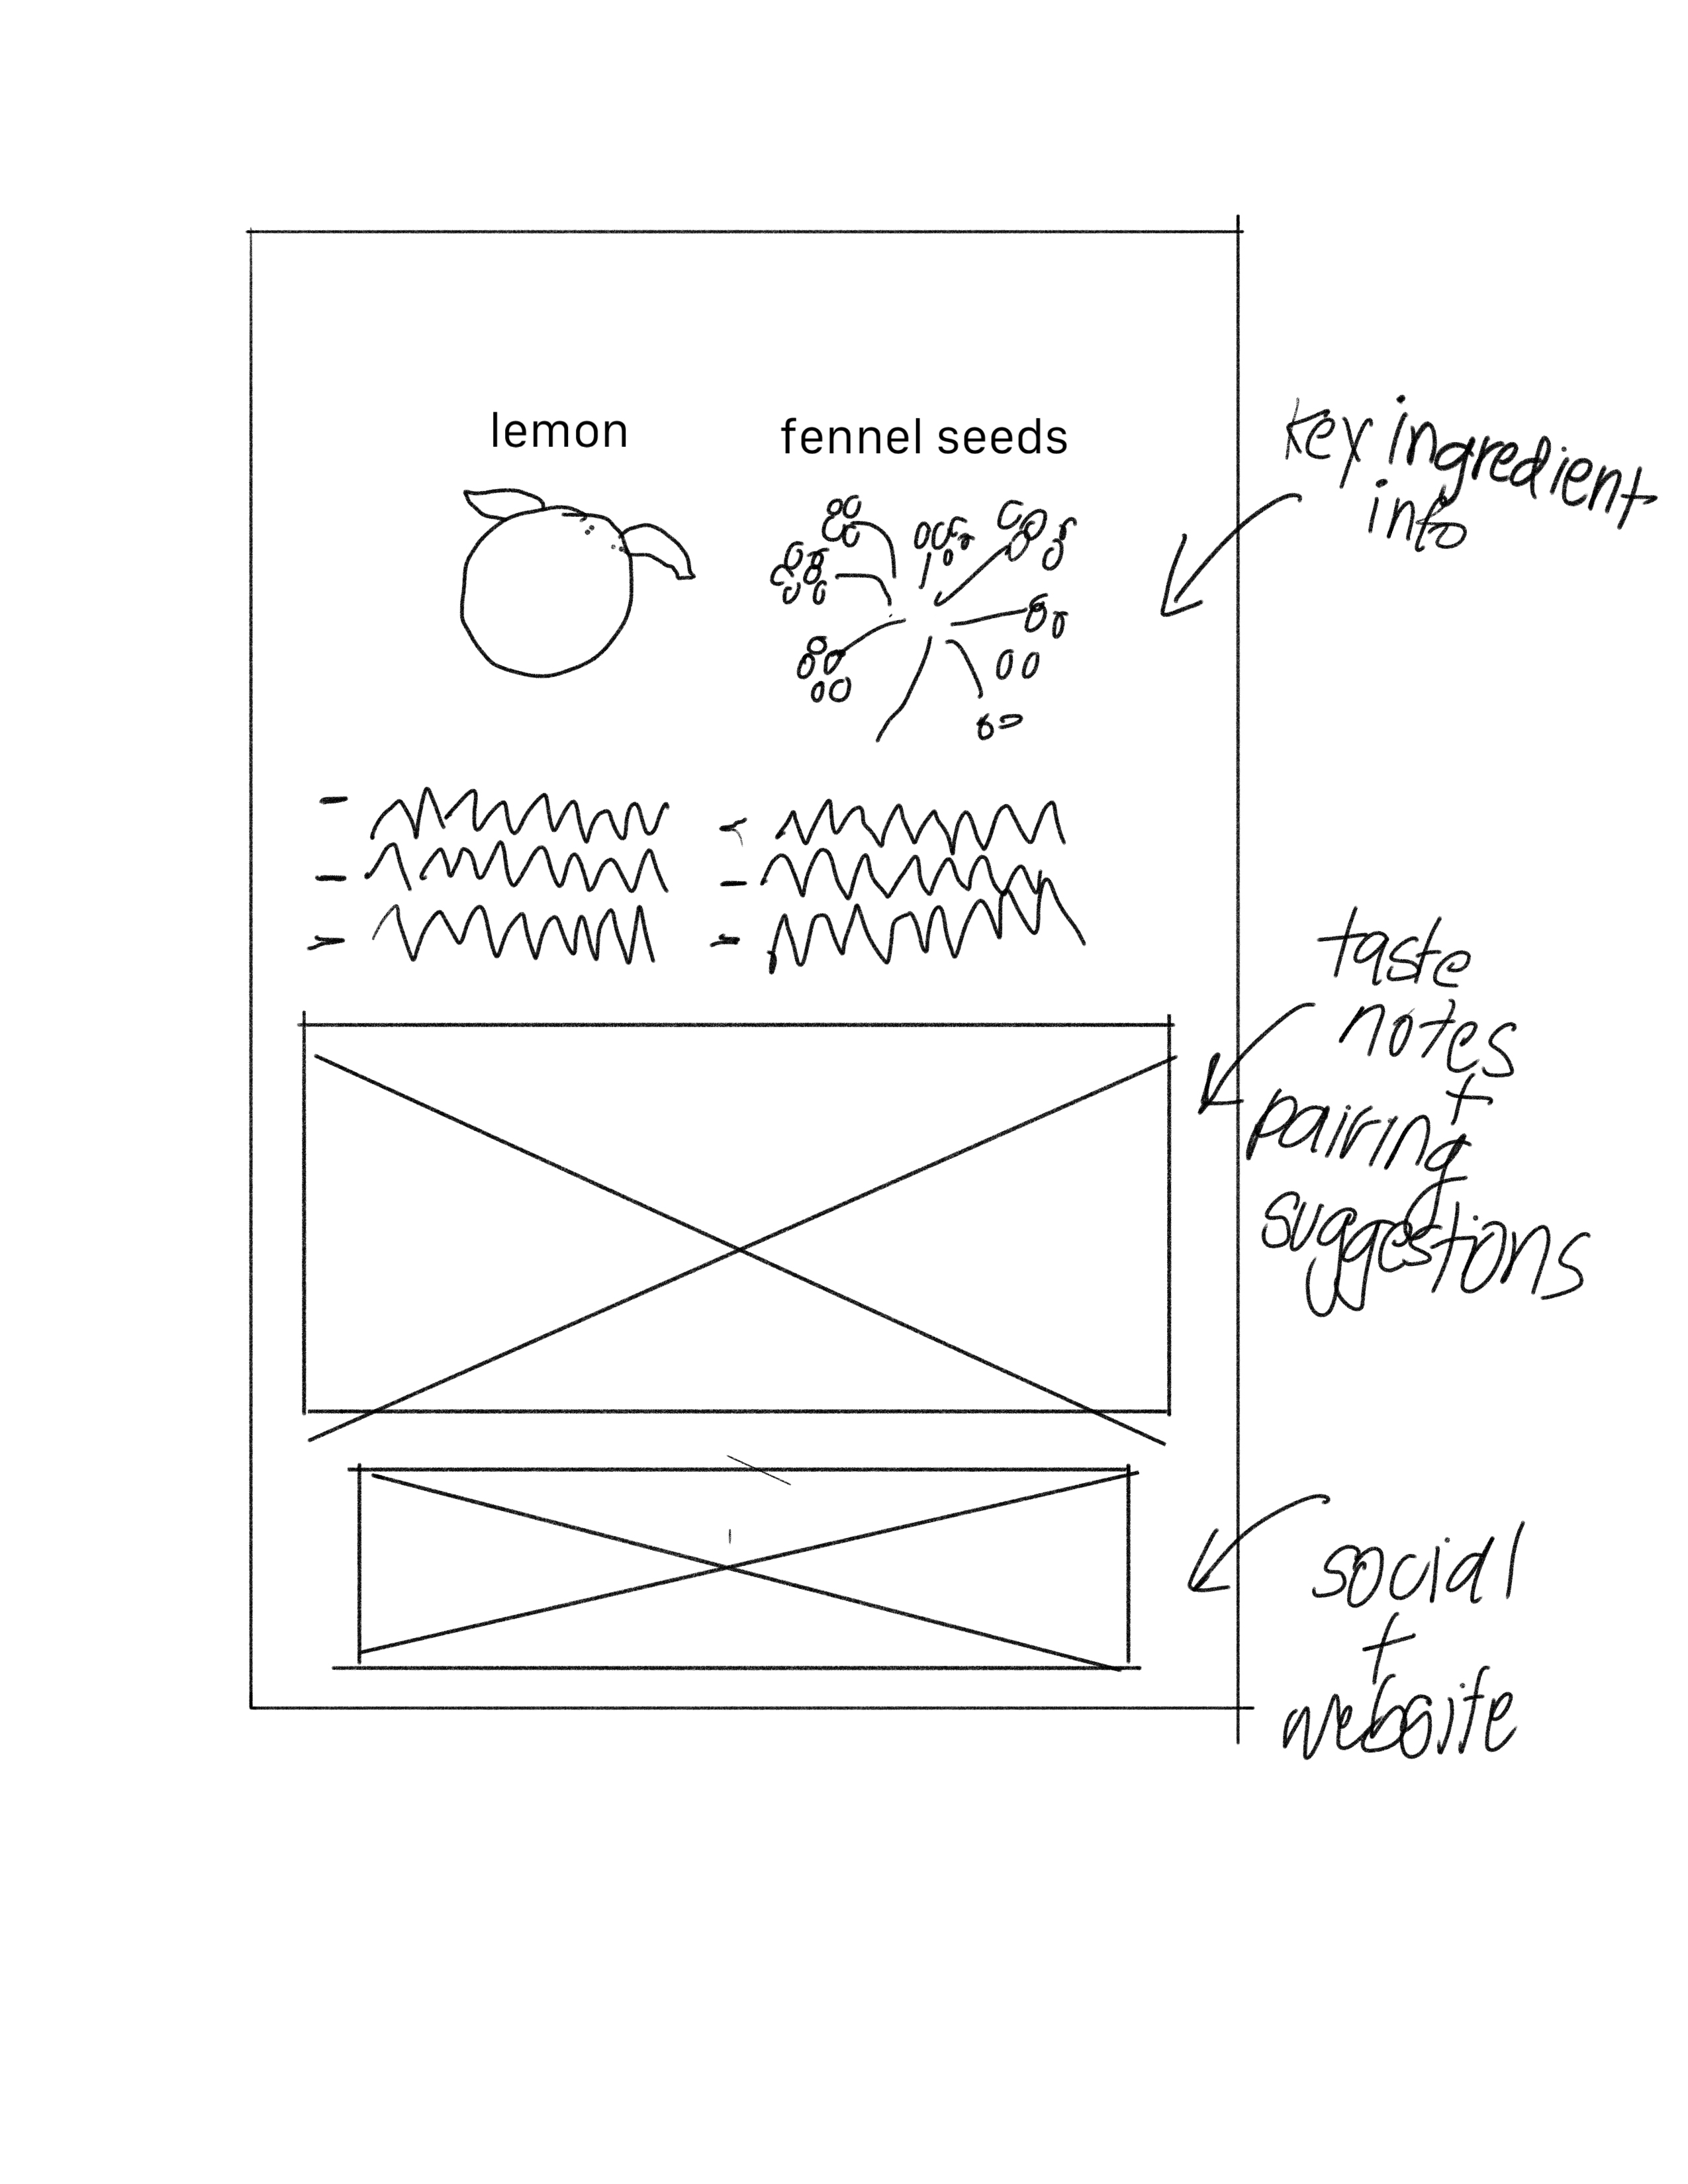 lemon
fennel seeds
key ingredient
info
taste
notes
+
pairing
suggestions
social
+
website